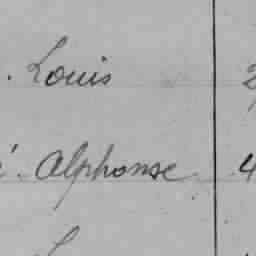 . Louis
Alphonse 4